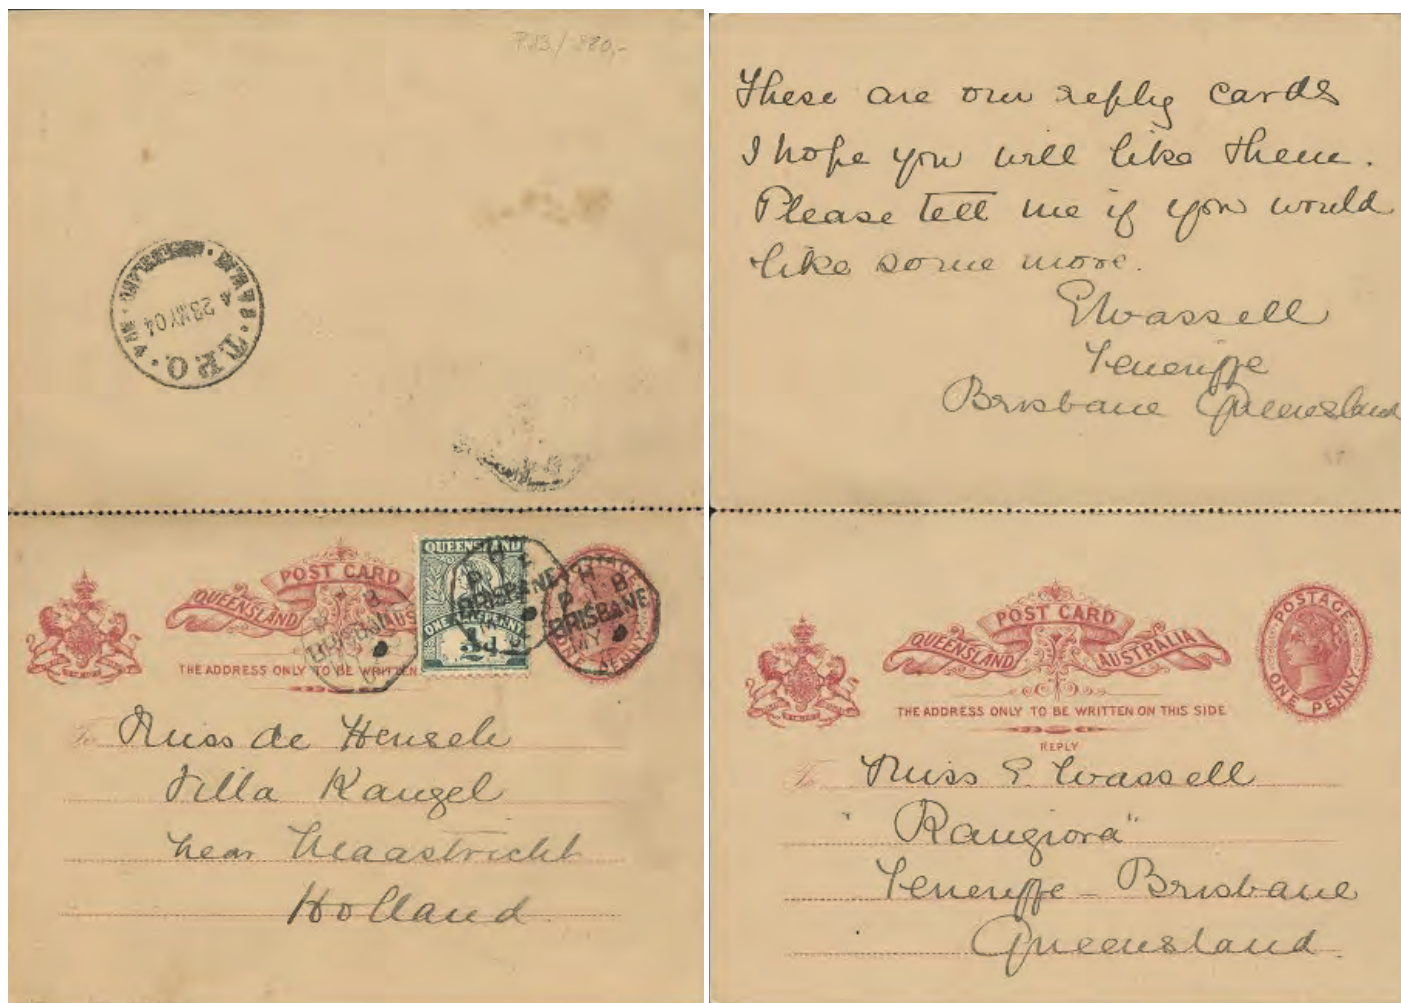 T.P.O.
4
23 MY 04
QUEENSLAND
POST CARD
THE ADDRESS ONLY TO BE WRITTEN
QUEENSLAND
ONE HALFPENNY
½d
BRISBANE
BRISBANE
MY
PENNY
To Miss de
Villa Kanzel
near Maastricht
Holland
These are our reply cards
I hope you will like them.
Please tell me if you would
like some more.
E Wassell
Teneriffe
Brisbane Queensland
POST CARD
QUEENSLAND AUSTRALIA
THE ADDRESS ONLY TO BE WRITTEN ON THIS SIDE
REPLY
POSTAGE
ONE PENNY
To Miss E. Wassell
"Rangiora"
Teneriffe - Brisbane
Queensland